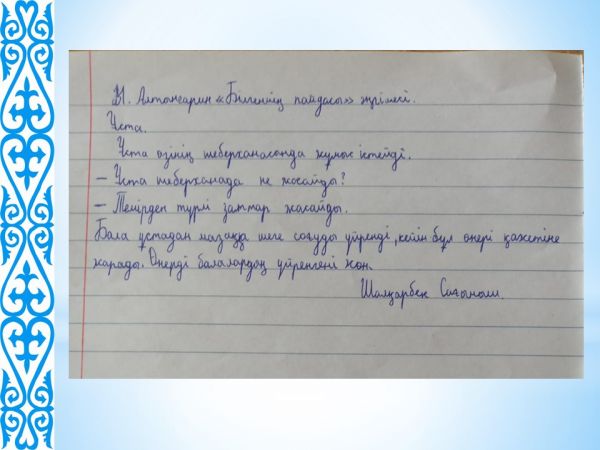 Ы. Алтынсарин «Білгеннің пайдасы» әңгімесі.
Ұста.
Ұста өзінің шеберханасында жұмыс істейді.
– Ұста шеберханада не жасайды?
– Темірден түрлі заттар жасайды.
Бала ұстадан мазаққа шеге соғуды үйренді, кейін бұл өнері қажетіне
жарады. Өнерді балалардың үйренгені жөн.
Шалқарбек Сағыныш.